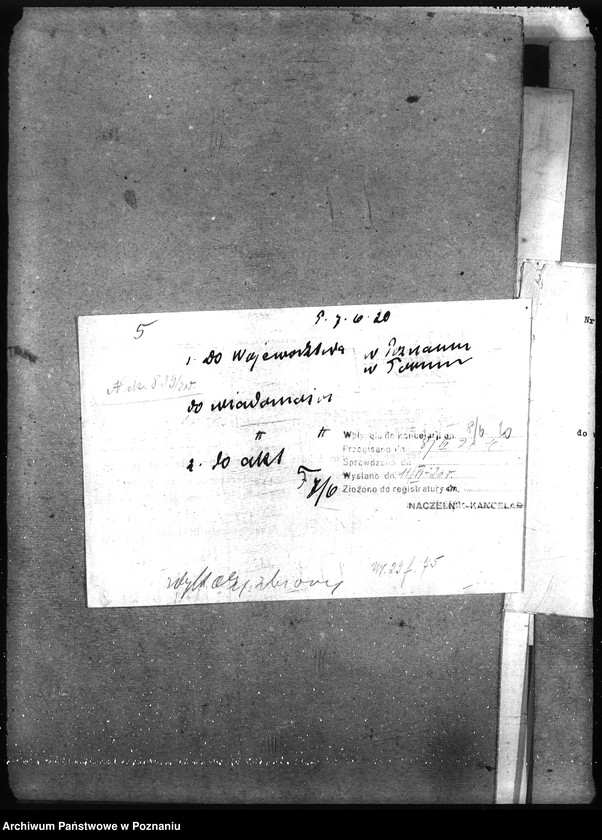 5
P. 7. 6. 20
1. Do Województwa w Poznaniu
w Toruniu
A. dz. 839/20
do wiadomości
" "
2. do akt
7/6
Wpłynęło do kancelarji dn. 8/6 20
Przepisano dn. 8/6
Sprawdzono dn.
Wysłano dn. 11/VI-20 r.
Złożono do registratury dn.
NACZELNIK-KANCELAR
Nr
do
Archiwum Państwowe w Poznaniu